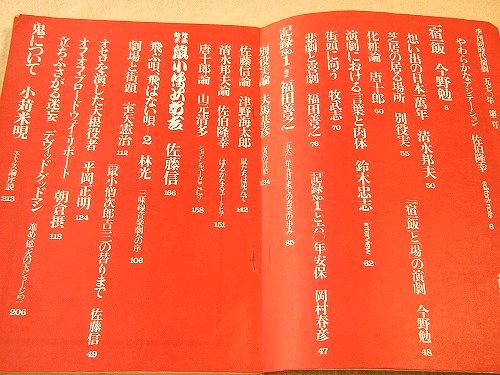 季刊同時代演劇
やわらかなファンデーション 佐伯隆幸 6
一宿一飯 今野勉 8
想い出の日本一萬年 清水邦夫 50
芝居の居る場所 別役実 55
「一宿一飯」と「場」の演劇 今野勉 48
化粧論 唐十郎 60
演劇における言葉と肉体 鈴木忠志 62
街頭に匂う 牧武志 70
悲劇と喜劇 福田善之 76
「記録No.1」 福田善之 85
「記録No.1」と六〇年安保 岡村春彦 47
別役実論 134
佐藤信論 津野海太郎 142
鼠たちは死んで
清水邦夫論 佐伯隆幸 151
はるかなるユートピア
唐十郎論 山元清多 158
鼠小僧次郎吉 佐藤信 166
飛ぶ唄・飛ばない唄・2 林光 106
三味線音楽劇への序
劇場と街頭 宝矢憲治 112
「鼠小僧次郎吉」三の替りまで 佐藤信 49
オセロを演じた大根役者 平岡正明 124
オフオフブロードウェイ・リポート 朝倉摂 118
立ちふさがる迷妄 デヴィッド・グッドマン 206
鬼について 小苅米晛 213